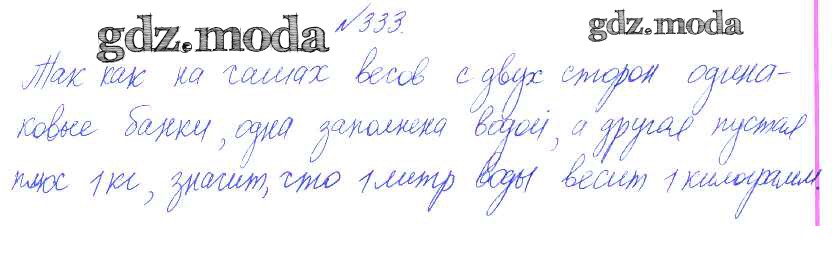 gdz.moda №333. gdz.moda
Так как на чашах весов с двух сторон одина-
ковые банки, одна заполнена водой, а другая пустая
плюс 1 кг, значит, что 1 литр воды весит 1 килограмм.